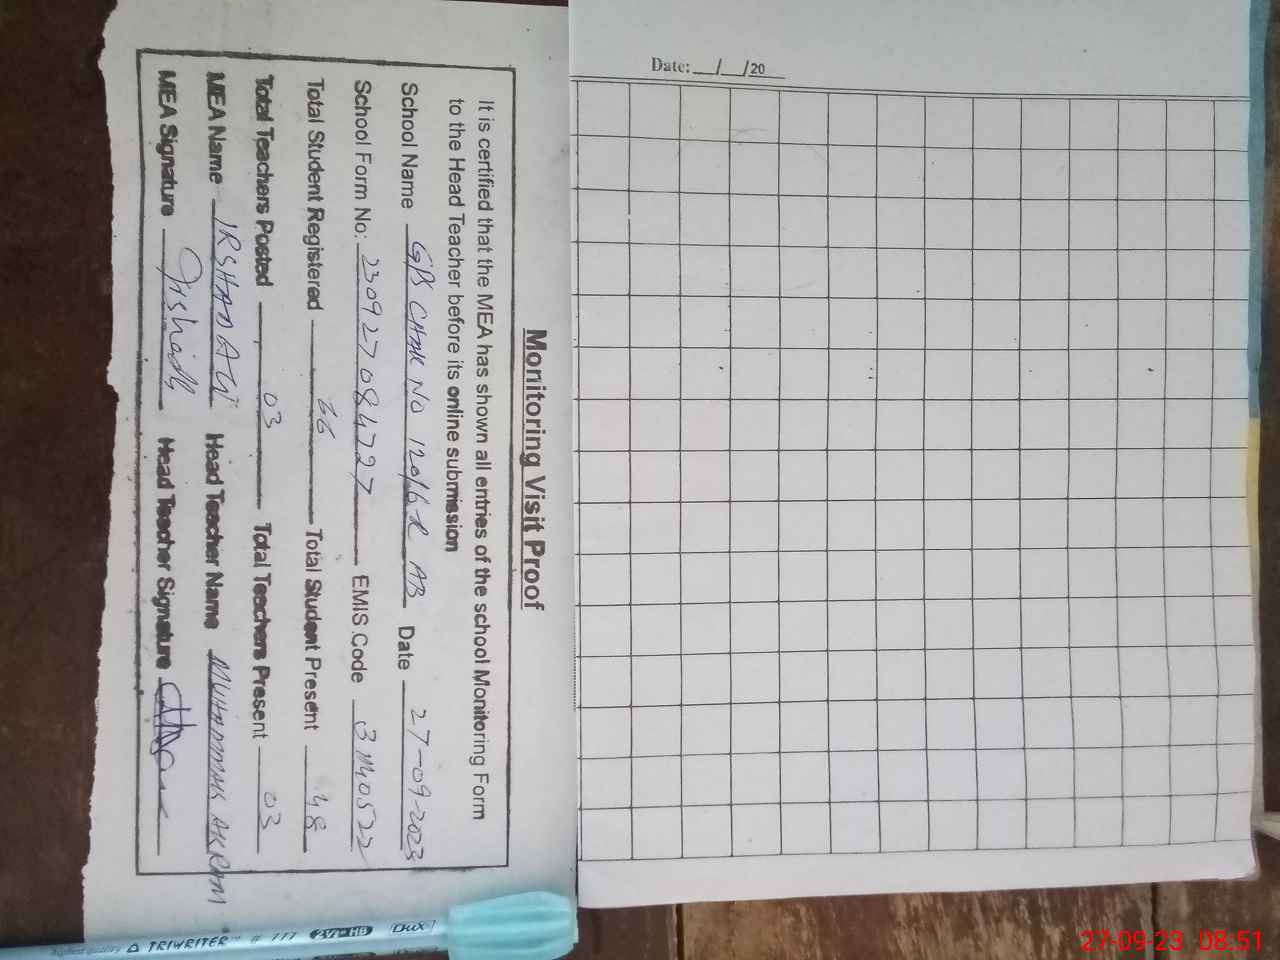 Monitoring Visit Proof
It is certified that the MEA has shown all entries of the school Monitoring Form
to the Head Teacher before its online submission
School Name GPS CHAK NO 120/6-R AB Date 27-09-2023
School Form No: 230927084727 EMIS Code 31140522
Total Student Registered 66 Total Student Present 48
Total Teachers Posted 03 Total Teachers Present 03
MEA Name IRSHAD ALI Head Teacher Name MUHAMMAD AKRAM
MEA Signature Irshad Head Teacher Signature
Date: __/__/20
highest quality TRIWRITER™ # 777 2½=HB Dux
27-09-23 08:51